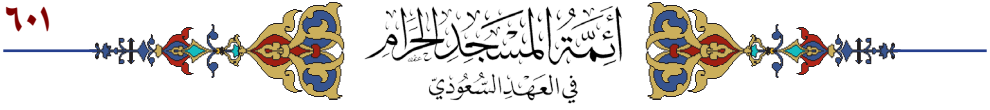 ٦٠١
أَئِمَّةُ المَسْجِدِ الحَرَامِ
فِي العَهْدِ السُّعُودِيِّ